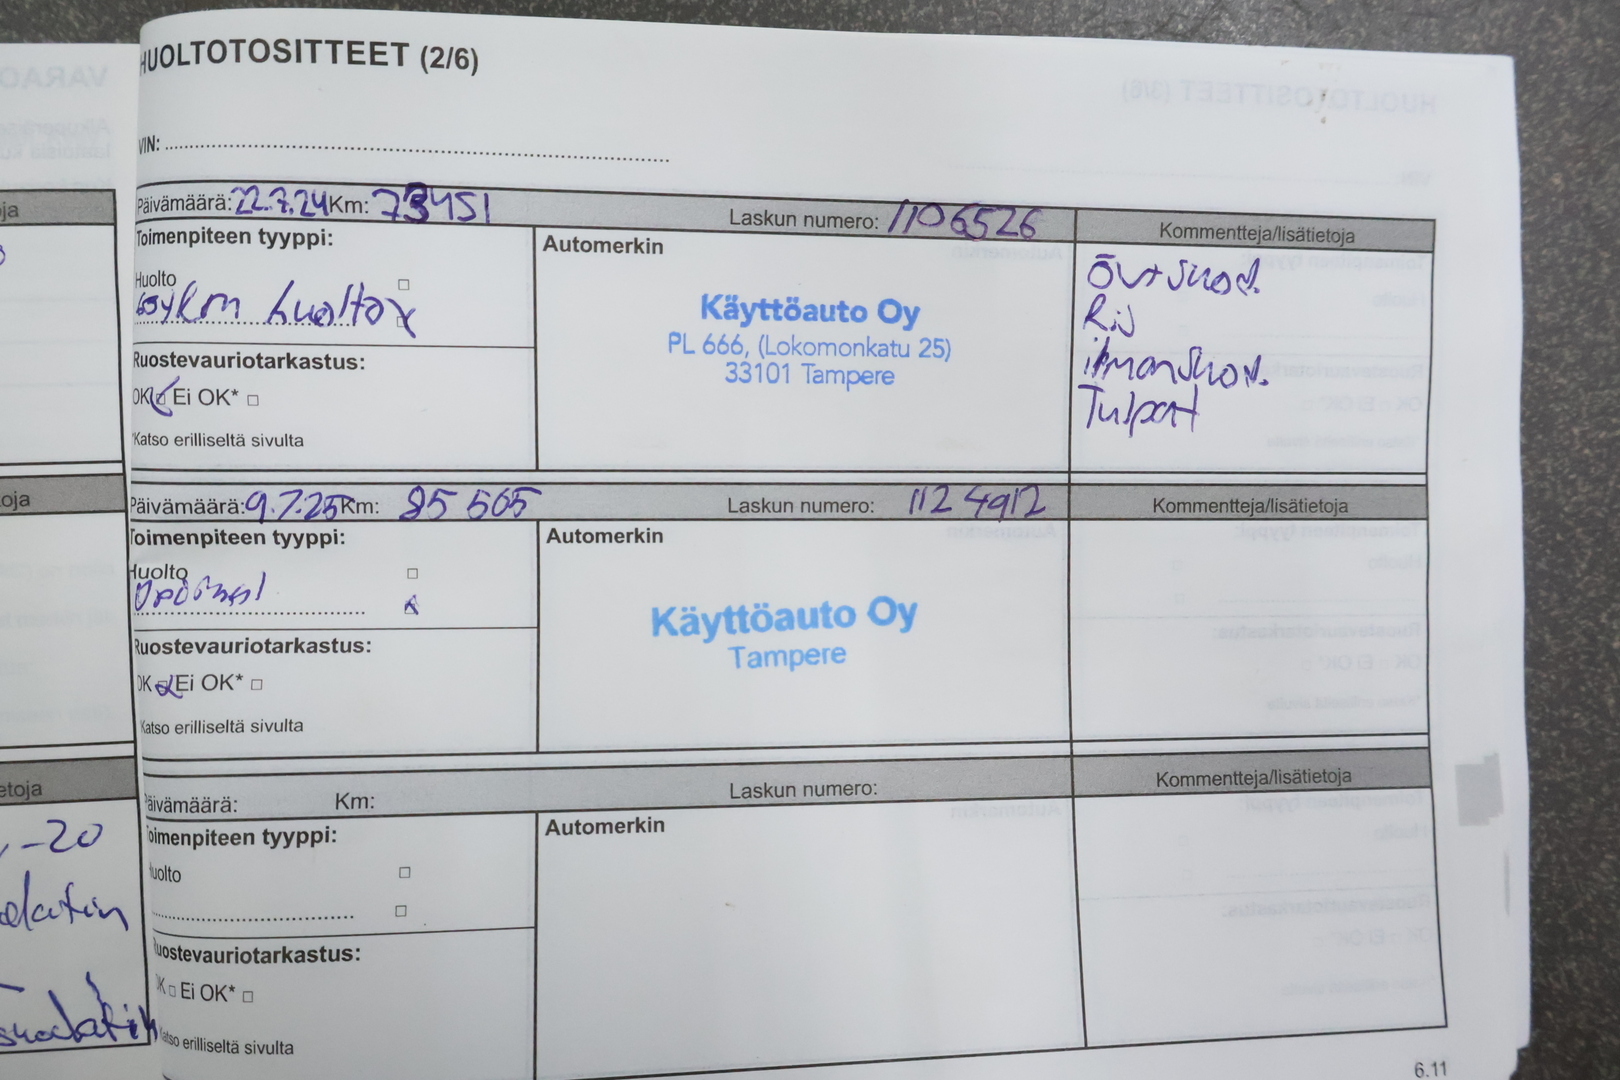 HUOLTOTOSITTEET (2/6)
VIN:
Päivämäärä: 22.7.24 Km: 73451 Laskun numero: 1106526 Kommentteja/lisätietoja
Toimenpiteen tyyppi:
Huolto
huolto x
Ruostevauriotarkastus:
OK Ei OK*
*Katso erilliseltä sivulta
Automerkin
Käyttöauto Oy
PL 666, (Lokomonkatu 25)
33101 Tampere
Öv+suod.
Rn
ilmansuod.
Tulpat
Päivämäärä: 9.7.25 Km: 85 505 Laskun numero: 1124912 Kommentteja/lisätietoja
Toimenpiteen tyyppi:
Huolto
x
Ruostevauriotarkastus:
OK x Ei OK*
Katso erilliseltä sivulta
Automerkin
Käyttöauto Oy
Tampere
Päivämäärä: Km: Laskun numero: Kommentteja/lisätietoja
Toimenpiteen tyyppi:
Huolto
Ruostevauriotarkastus:
OK Ei OK*
Katso erilliseltä sivulta
Automerkin
6.11